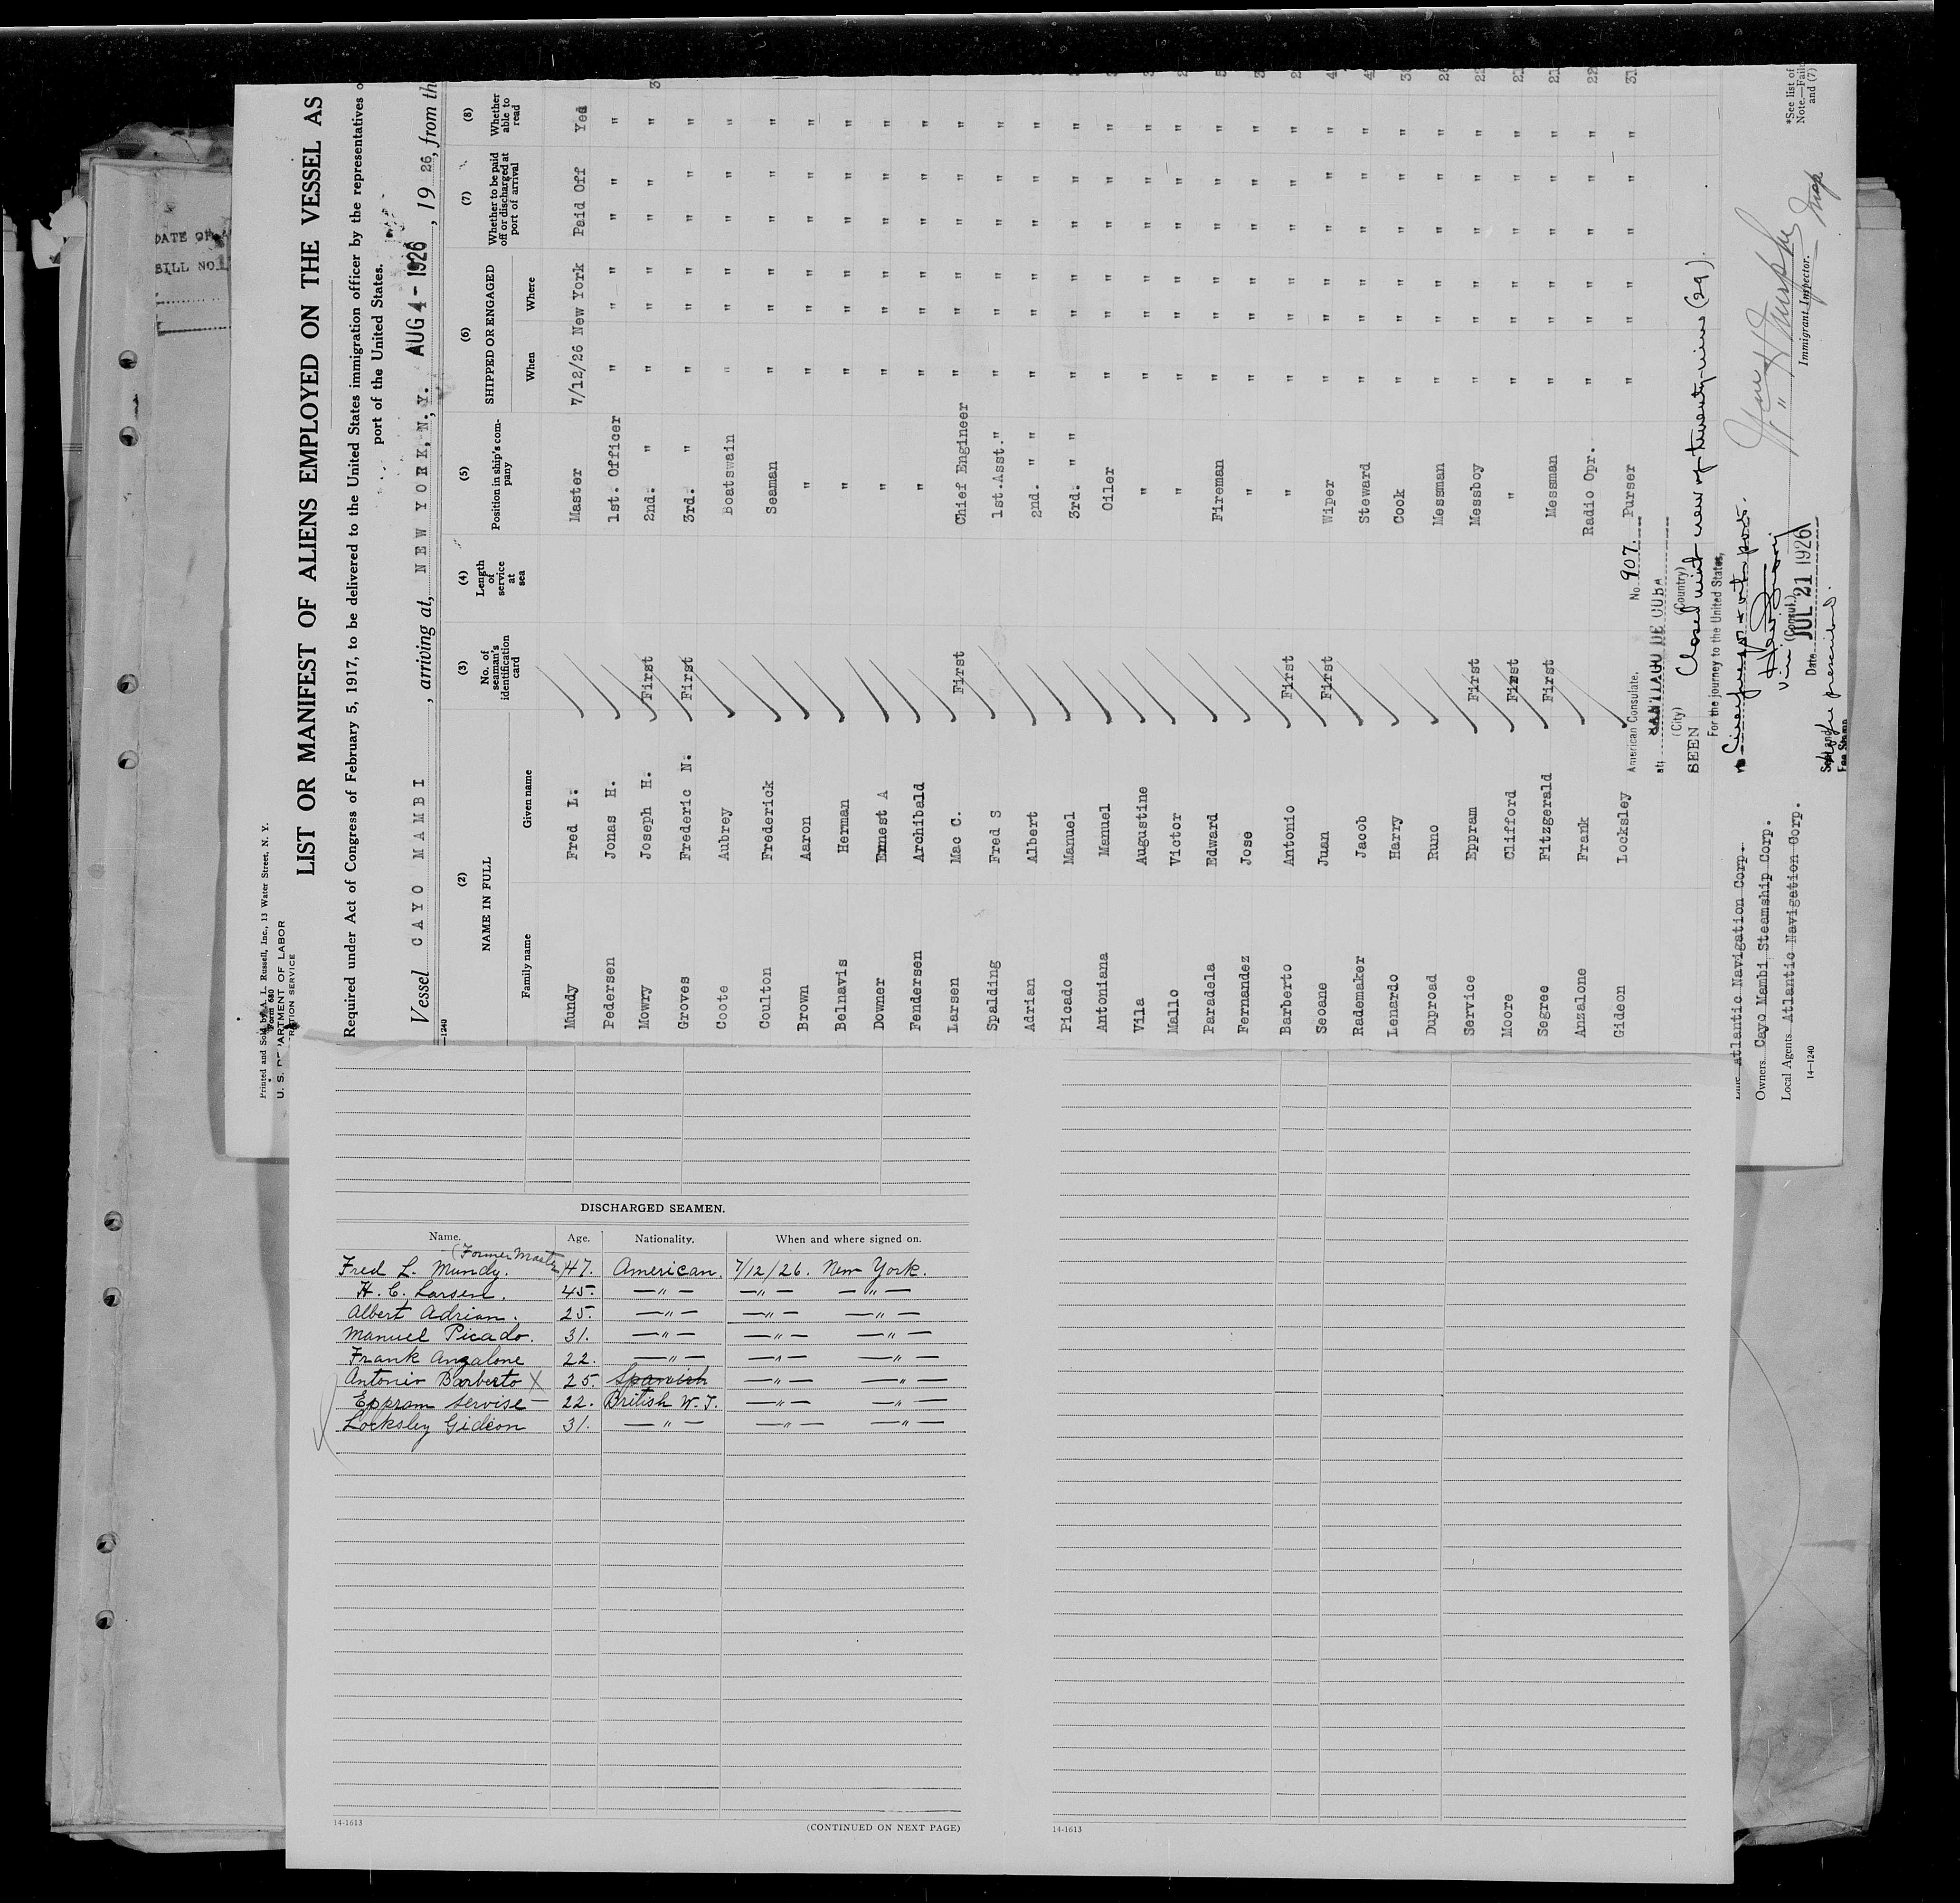 DATE OF A
BILL NO.
Printed and Sold by A. L. Russell, Inc., 13 Water Street, N. Y.
Form 680
U. S. DEPARTMENT OF LABOR
RATION SERVICE
LIST OR MANIFEST OF ALIENS EMPLOYED ON THE VESSEL AS
Required under Act of Congress of February 5, 1917, to be delivered to the United States immigration officer by the representatives o
port of the United States.
Vessel CAYO MAMBI, arriving at, NEW YORK, N, Y. AUG 4 - 1926, 19 26, from th
—1240
(2) (3) (4) (5) (6) (7) (8)
NAME IN FULL No. of seaman's identification card Length of service at sea Position in ship's company SHIPPED OR ENGAGED Whether to be paid off or discharged at port of arrival Whether able to read
Family name Given name When Where
Mundy Fred L. Master 7/12/26 New York Paid Off Yes
Pedersen Jonas H. 1st. Officer " " " " " "
Mowry Joseph H. First 2nd. " " " " " " " 3
Groves Frederic N. First 3rd. " " " " " " "
Coote Aubrey Boatswain " " " " " "
Coulton Frederick Seaman " " " " " "
Brown Aaron " " " " " " "
Belnavis Herman " " " " " " "
Downer Ernest A " " " " " " "
Fendersen Archibald " " " " " " "
Larsen Mac C. First Chief Engineer " " " " " "
Spalding Fred S 1st.Asst." " " " " " "
Adrian Albert 2nd. " " " " " " " " 2
Picado Manuel 3rd. " " " " " " " "
Antoniana Manuel Oiler " " " " " "
Vila Augustine " " " " " " " 3
Mallo Victor " " " " " " " 2
Paradela Edward Fireman " " " " " " 5
Fernandez Jose " " " " " " " 3
Barberto Antonio First " " " " " " " 2
Seoane Juan First Wiper " " " " " " 4
Rademaker Jacob Steward " " " " " " 4
Lenardo Harry Cook " " " " " " 38
Duproad Runo Messman " " " " " " 26
Service Eppram First Messboy " " " " " " 22
Moore Clifford First " " " " " " " 21
Segree Fitzgerald First Messman " " " " " " 21
Anzalone Frank Radio Opr. " " " " " " 22
Gideon Locksley Purser " " " " " " 31
American Consulate, No. 907.
at; SANTIAGO DE CUBA
(City) (Country)
SEEN Closed with crew of twenty-nine (29).
For the journey to the United States,
via Cienfuegos & other ports.
Vice (Consul.)
Date JUL 21 1926
prescribed.
Fee Stamp
Line Atlantic Navigation Corp.
Owners Cayo Mambi Steamship Corp.
Local Agents Atlantic Navigation Corp.
Immigrant Inspector.
14—1240
*See list of
Note.—Failu
and (7)
DISCHARGED SEAMEN.
Name. Age. Nationality. When and where signed on.
(Former Master)
Fred L. Mundy. 47. American. 7/12/26. New York.
H. C. Larsen. 45. —"— —"— —"—
Albert Adrian. 25. —"— —"— —"—
Manuel Picado. 31. —"— —"— —"—
Frank Anzalone 22. —"— —"— —"—
Antonio Barberto X 25. Spanish —"— —"—
Eppram Servise— 22. British W. I. —"— —"—
Locksley Gideon 31. —"— —"— —"—
14-1613
(CONTINUED ON NEXT PAGE)
14-1613